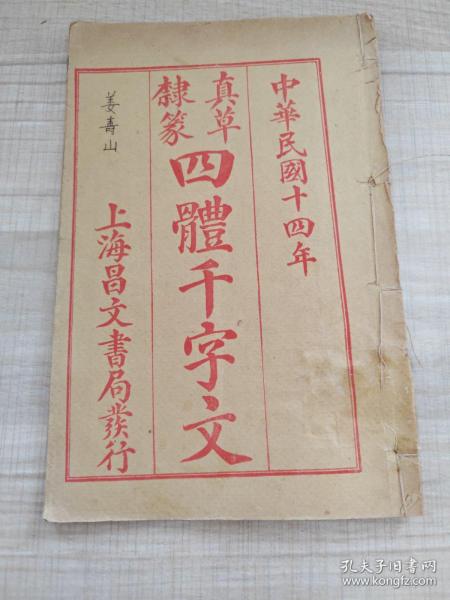 中華民國十四年
真草
隸篆
四體千字文
上海昌文書局發行
姜壽山
孔夫子旧书网
www.kongfz.com